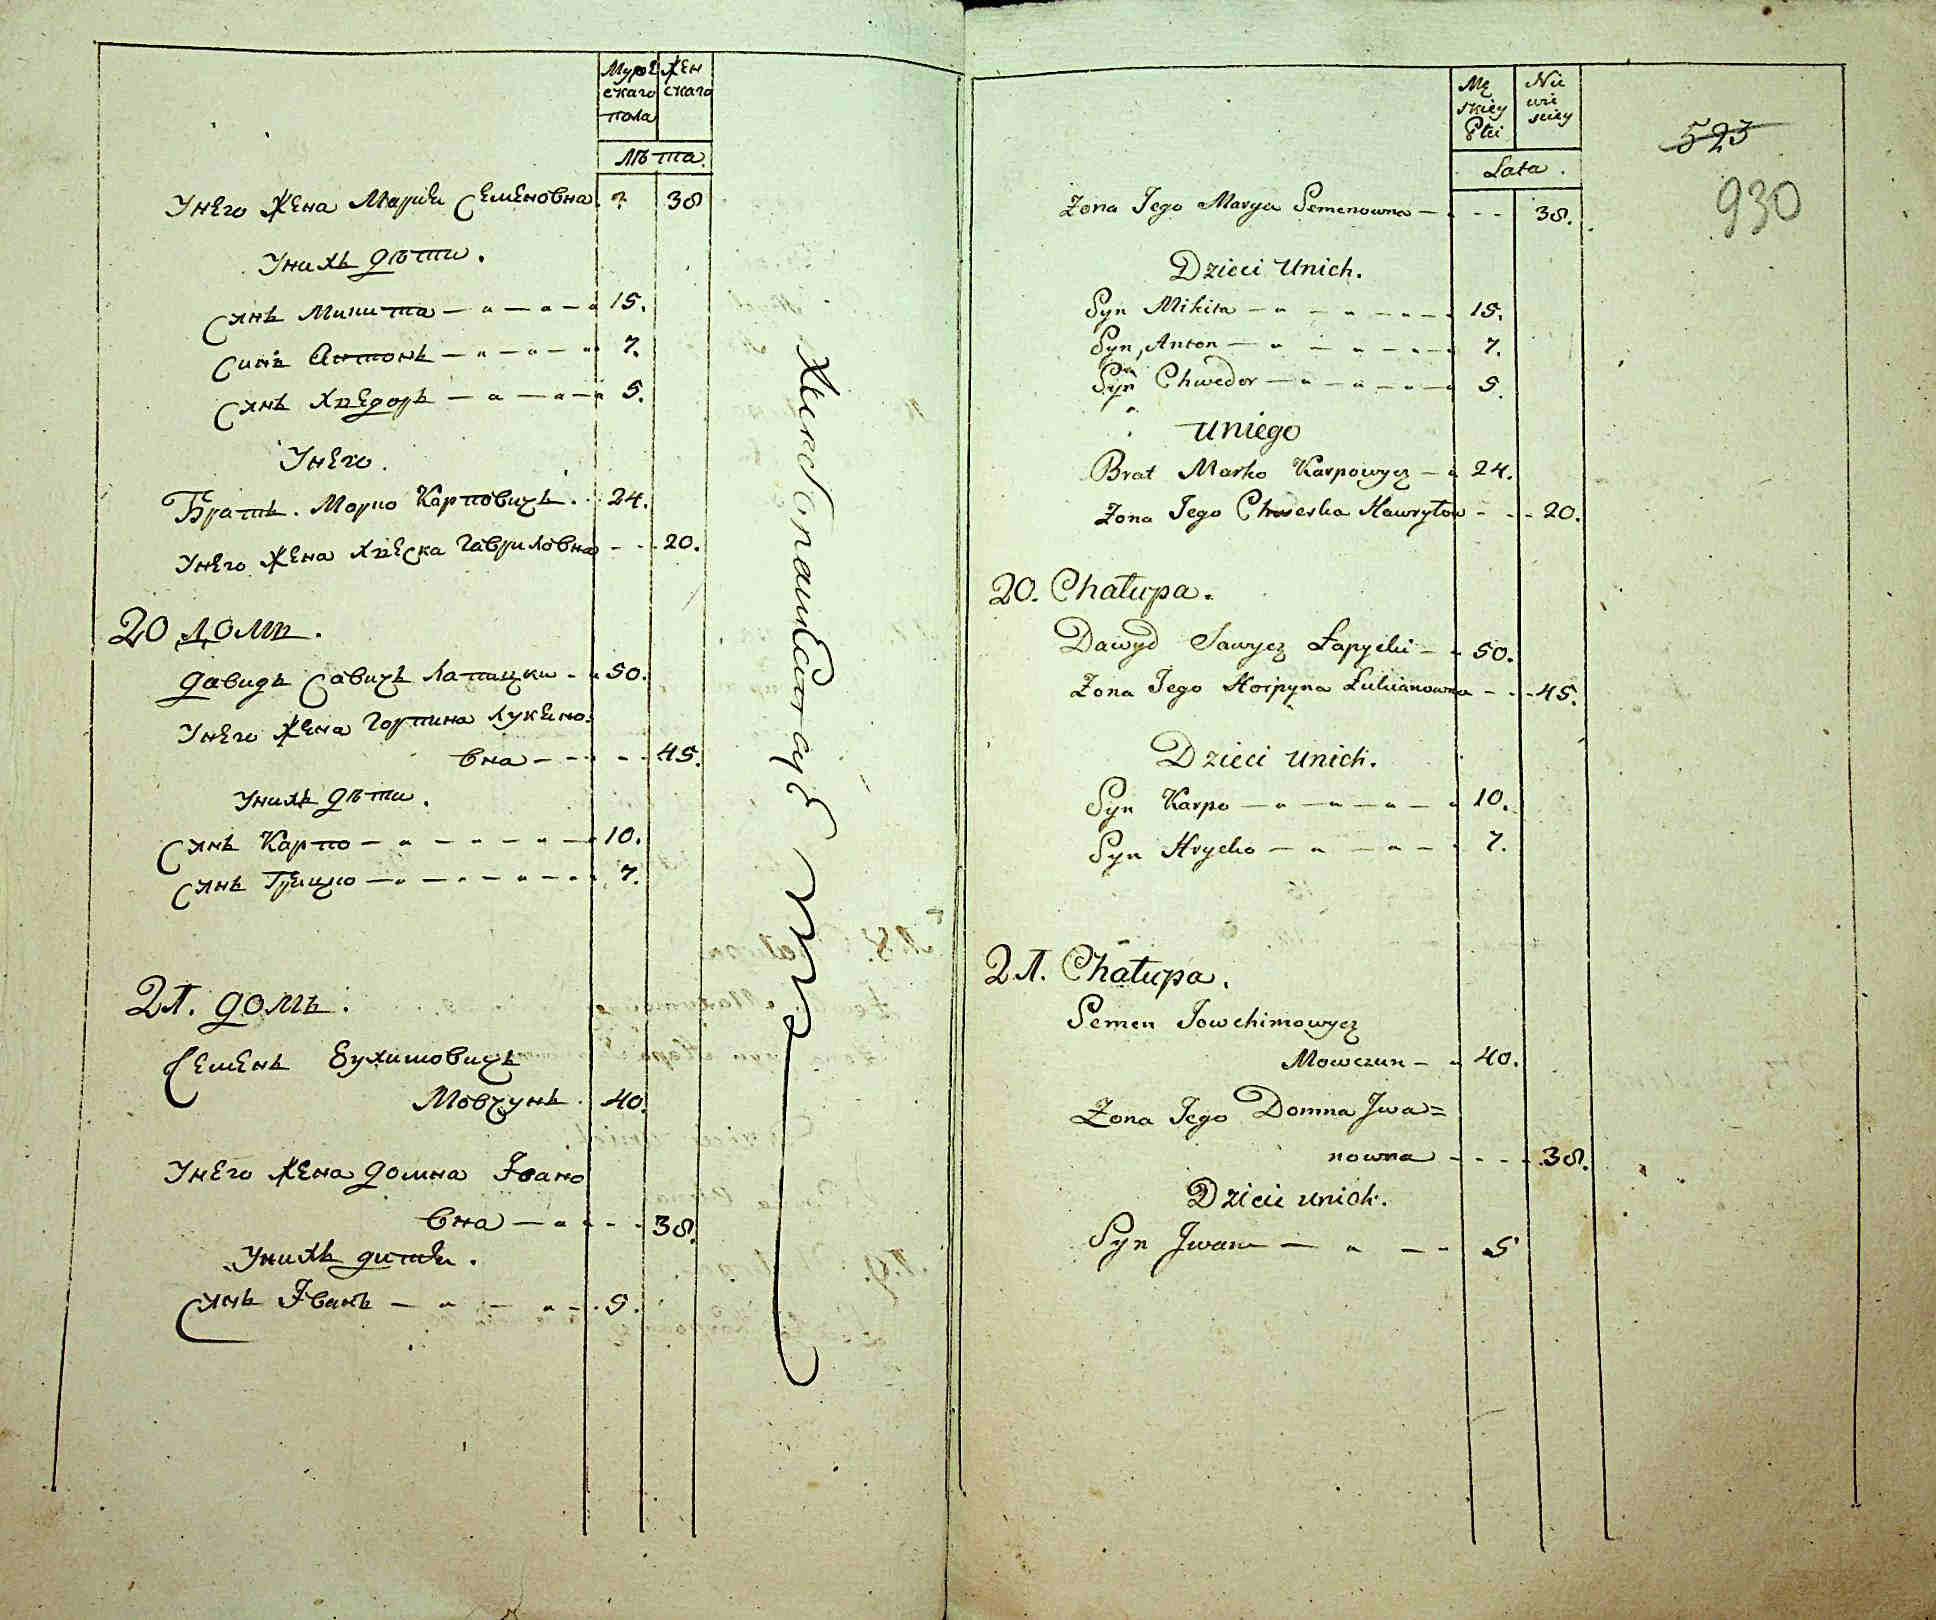 Мужескаго пола
Женскаго
Лѣта.
Унего Жена Марія Семеновна 38
Унихъ дѣти.
Сынъ Микита — 15.
Синъ Антонъ — 7.
Сынъ Хведоръ — 5.
Унего.
Братъ. Марко Карповичъ. 24.
Унего Жена Хвеска Гавриловна - - 20.
20 домъ.
Давидъ Савичъ Лапицки - 50.
Унего Жена Горпина Лукено
вна - - - 45.
Унихъ дѣти.
Сынъ Карпо — 10.
Сынъ Грицко — 7.
21. домъ.
Семенъ Евхимовичъ
Мовчунъ. 40.
Унего Жена Домна Іоано
вна — - - 38.
Унихъ дити.
Сынъ Іванъ — 5.
Męskiey Płci
Niewieściey
Lata.
523
930
Zona Jego Marya Semenowna — - - 38.
Dzieci Unich.
Syn Mikita — 15.
Syn Anton — 7.
Syn Chwedor — 5.
Uniego
Brat Marko Karpowycz — 24.
Zona Jego Chweska Hawryłow - - - 20.
20. Chałupa.
Dawyd Sawycz Łapycki - - 50.
Zona Jego Horpyna Łukianowna - - - 45.
Dzieci Unich.
Syn Karpo — 10.
Syn Hrycko — 7.
21. Chałupa.
Semen Jowchimowycz
Mowczun - 40.
Zona Jego Domna Jwa=
nowna - - - - 38.
Dzieci unich.
Syn Jwan — 5